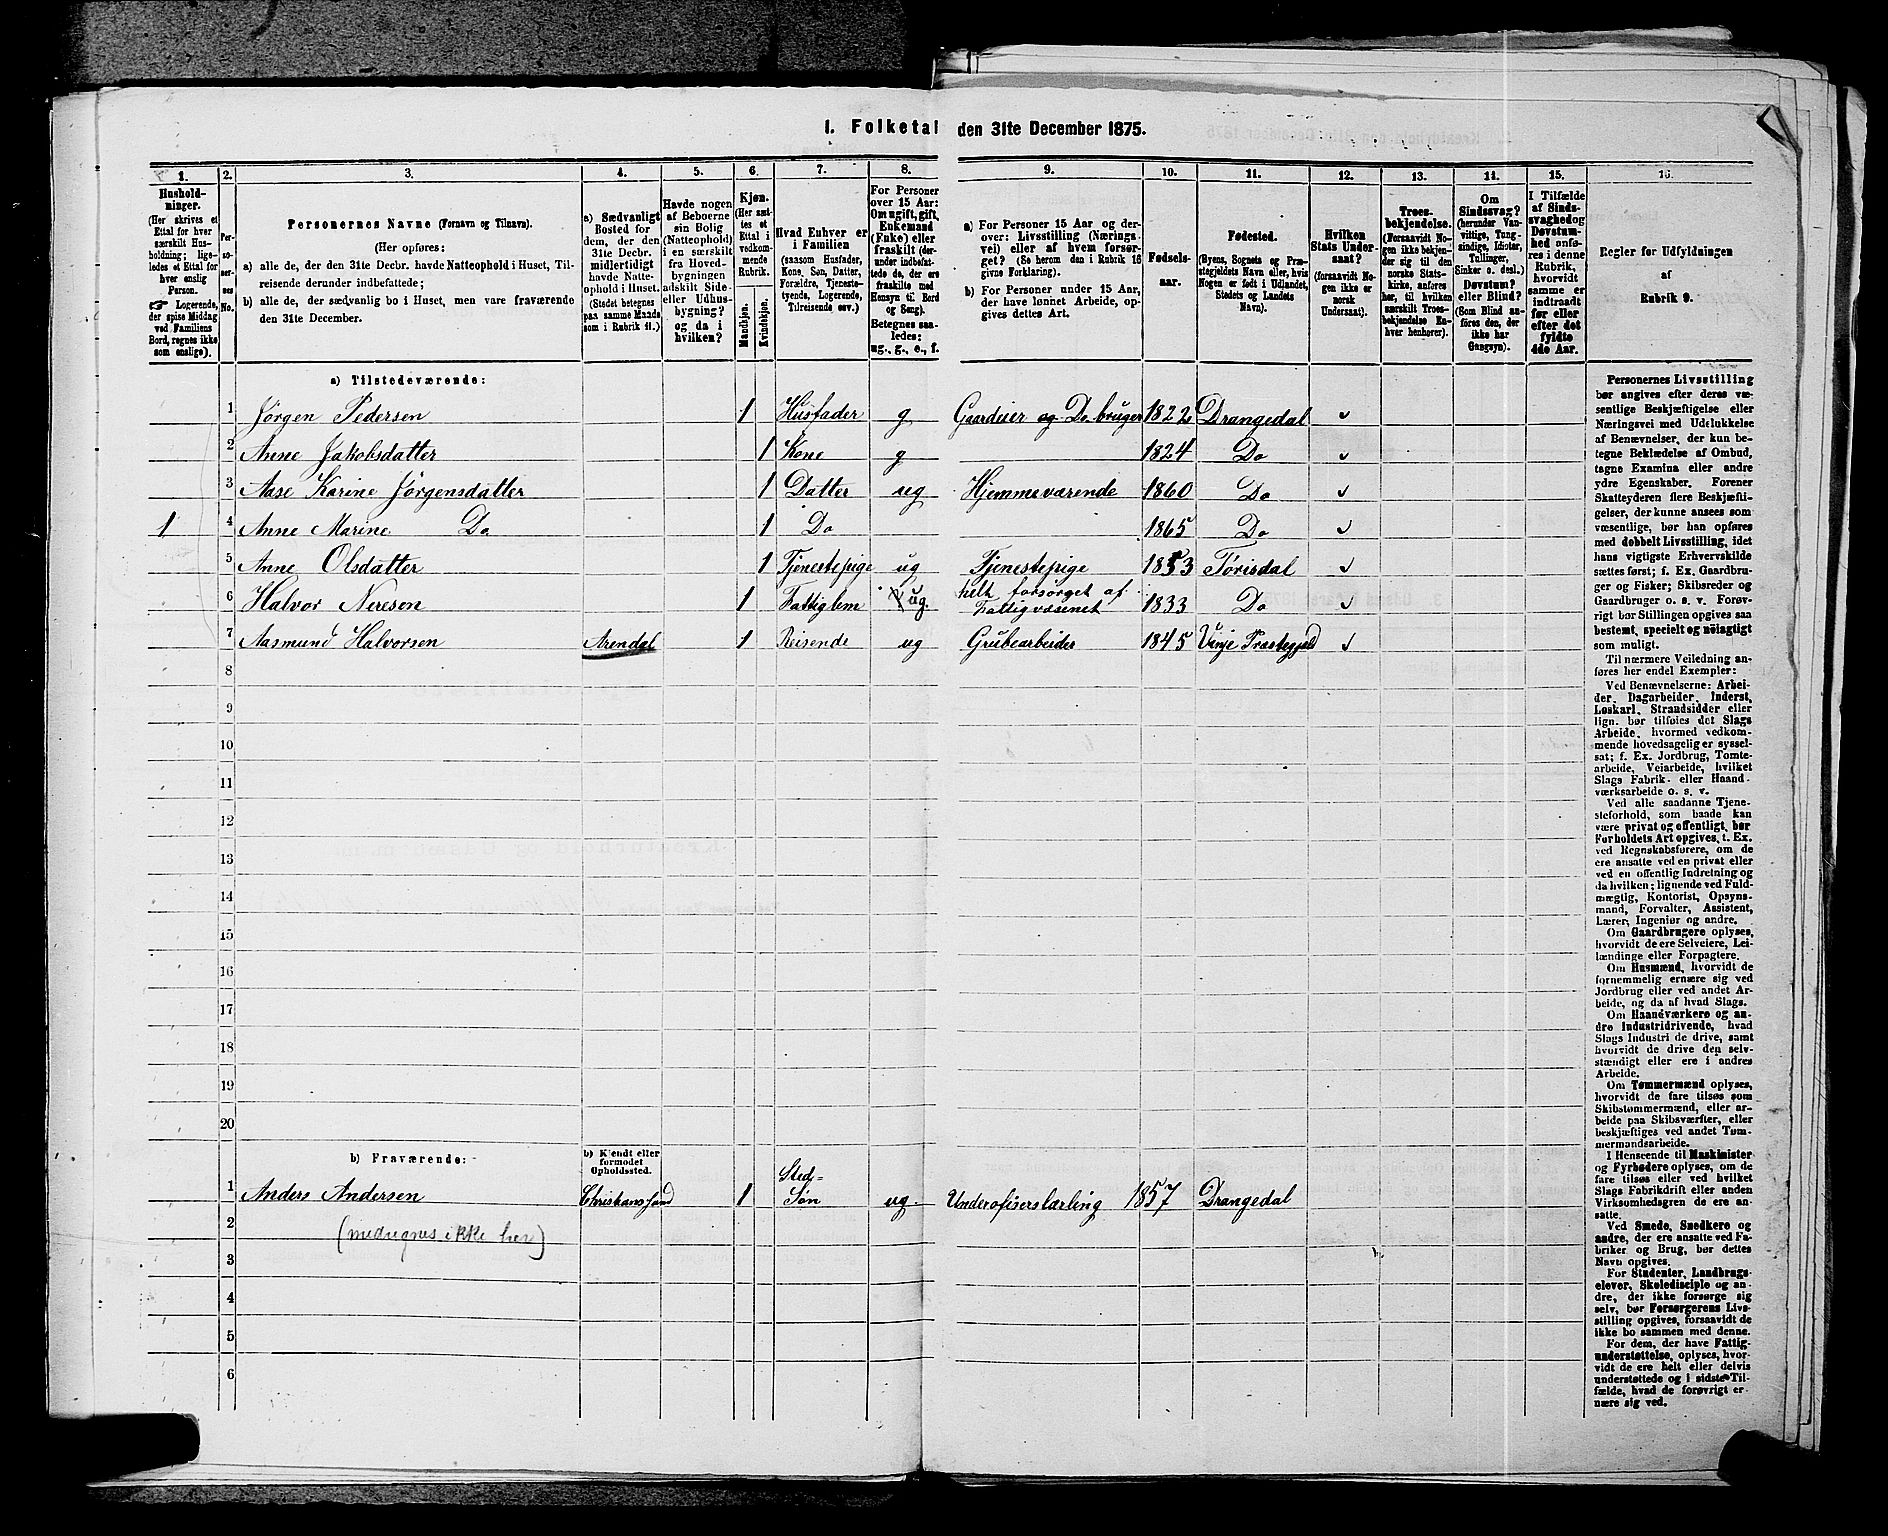 1. Folketal den 31te December 1875.
1. 2. 3. 4. 5. 6. 7. 8. 9. 10. 11. 12. 13. 14. 15. 16.
Hushold-
ninger.
(Her skrives et
Ettal for hver
særskilt Hus-
holdning; lige-
ledes et Ettal for
hver enslig
Person.
☞ Logerende,
der spise Middag
ved Familiens
Bord, regnes ikke
som enslige).
Per-
so-
ner-
nes
No.
Personernes Navne (Fornavn og Tilnavn).
(Her opføres:
a) alle de, der den 31te Decbr. havde Natteophold i Huset, Til-
reisende derunder indbefattede;
b) alle de, der sædvanlig bo i Huset, men vare fraværende
den 31te December.
a) Sædvanligt
Bosted for
dem, der den
31te Decbr.
midlertidigt
havde Natte-
ophold i Huset.
(Stedet betegnes
paa samme Maade
som i Rubrik 11.)
Havde nogen
af Beboerne
sin Bolig
(Natteophold)
i en særskilt
fra Hoved-
bygningen
adskilt Side-
eller Udhus-
bygning?
og da i
hvilken?
Kjøn.
(Her sæt-
tes et
Ettal i
vedkom-
mende
Rubrik.
Mandkjøn.
Kvindekjøn.
Hvad Enhver er
i Familien
(saasom Husfader,
Kone, Søn, Datter,
Forældre, Tjeneste-
tyende, Logerende,
Tilreisende osv.)
For Personer
over 15 Aar:
Om ugift, gift,
Enkemand
(Enke) eller
fraskilt (der-
under indbefat-
tede de, der ere
fraskilte med
Hensyn til Bord
og Seng).
Betegnes saa-
ledes:
ug., g., e., f.
a) For Personer 15 Aar og der-
over: Livsstilling (Nærings-
vei) eller af hvem forsør-
get? (Se herom den i Rubrik 16
givne Forklaring).
b) For Personer under 15 Aar,
der have lønnet Arbeide, op-
gives dettes Art.
Fødsels-
aar.
Fødested.
(Byens, Sognets og Præ-
stegjeldets Navn eller, hvis
Nogen er født i Udlandet,
Stedets og Landets
Navn).
Hvilken
Stats Under-
saat?
(forsaavidt No-
gen ikke er
norsk
Undersaat).
Troes-
bekjendelse.
(Forsaavidt No-
gen ikke bekjen-
der sig til den
norske Stats-
kirke, anføres
her, til hvilken
særskilt Troes-
bekjendelse En-
hver henhører).
Om
Sindssvag?
(herunder Van-
vittige, Tung-
sindige, Idioter,
Tullinger,
Sinker o. desl.)
Døvstum?
eller Blind?
(Som Blind an-
føres den, der
ikke har
Gangsyn).
I Tilfælde
af Sinds-
svaghed og
Døvstum-
hed anfø-
res i denne
Rubrik,
hvorvidt
samme er
indtraadt
før eller
efter det
fyldte
4de Aar.
Regler for Udfyldningen
af
Rubrik 9.
a) Tilstedeværende:
1 Jørgen Pedersen 1 Husfader g Gaardeier og Do bruger 1822 Drangedal
2 Anne Jakobsdatter 1 Kone g 1824 Do
3 Aase Karine Jørgensdatter 1 Datter ug Hjemmeværende 1860 Do
1 4 Anne Marine Do 1 Do 1865 Do
5 Anne Olsdatter 1 Tjenestepige ug Tjenestepige 1853 Tørisdal
6 Halvor Neresen 1 Fattiglem ug. helt forsørget af
Fattigvæsenet 1833 Do
7 Aasmund Halvorsen Arendal 1 Reisende ug Grubearbeider 1845 Vinje Præstegjeld
8
9
10
11
12
13
14
15
16
17
18
19
20
b) Fraværende:
b) Kjendt eller
formodet
Opholdssted.
1 Anders Andersen Christianssand 1 Sted-
Søn ug. Underofiserslærling 1857 Drangedal
2 (medregnes ikke her)
3
4
5
6
Personernes Livsstilling
bør angives efter deres væ-
sentlige Beskjæftigelse eller
Næringsvei med Udelukkelse
af Benævnelser, der kun be-
tegne Beklædelse af Ombud,
tagne Examina eller andre
ydre Egenskaber. Forener
Skatteyderen flere Beskjæfti-
gelser, der kunne ansees som
væsentlige, bør han opføres
med dobbelt Livsstilling, idet
hans vigtigste Erhvervskilde
sættes først; f. Ex. Gaardbru-
ger og Fisker; Skibsreder og
Gaardbruger o. s. v. Forøv-
rigt bør Stillingen opgives saa
bestemt, specielt og nøiagtigt
som muligt.
Til nærmere Veiledning an-
føres her endel Exempler:
Ved Benævnelserne: Arbei-
der, Dagarbeider, Inderst,
Løskarl, Strandsidder eller
lign. bør tilføies det Slags
Arbeide, hvormed vedkom-
mende hovedsagelig er syssel-
sat; f. Ex. Jordbrug, Tømte-
arbeide, Veiarbeide, hvilket
Slags Fabrik- eller Haand-
værksarbeide o. s. v.
Ved alle saadanne Tjene-
steforhold, som baade kan
være privat og offentligt, bør
Forholdets Art opgives, t. Ex.
ved Regnskabsførere, om de
ere ansatte ved en privat eller
ved en offentlig Indretning og
da hvilken; lignende ved Fuld-
mægtig, Kontorist, Opsyns-
mand, Forvalter, Assistent,
Lærer, Ingeniør og andre.
Om Gaardbrugere oplyses,
hvorvidt de ere Selveiere, Lei-
lændinge eller Forpagtere.
Om Husmænd, hvorvidt de
fornemmelig ernære sig ved
Jordbrug eller ved andet Ar-
beide, og da af hvad Slags.
Om Haandværkere og an-
dre Industridrivende, hvad
Slags Industri de drive, samt
hvorvidt de drive den selv-
stændigt eller ere i andres
Arbeide.
Om Tømmermænd oplyses,
hvorvidt de fare tilsøs som
Skibstømmermænd, eller ar-
beide paa Skibsværfter, eller
beskjæftiges ved andet Tøm-
mermandsarbeide.
I Henseende til Maskinister
og Fyrbødere oplyses, om de
fare tilsøs eller ved hvilket
Slags Fabrikdrift eller anden
Virksomhedsgren de ere an-
satte.
Ved Smede, Snedkere og
andre, der ere ansatte ved Fa-
briker og Brug, bør dettes
Navn opgives.
For Studenter, Landbrugs-
elever, Skoledisciple og an-
dre, der ikke forsørge sig
selv, bør Forsørgerens Livs-
stilling opgives, forsaavidt de
ikke bo sammen med denne.
For dem, der have Fattig-
understøttelse, oplyses, hvor-
vidt de ere helt eller delvis
understøttede og i sidste Til-
fælde, hvad de forøvrigt er-
nære sig ved.